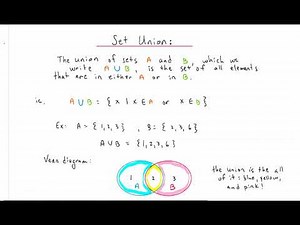 Set Union:
The union of sets A and B, which we
write A∪B, is the set of all elements
that are in either A or in B.
ie. A∪B = { x | x∈A or x∈B }
Ex: A = {1,2,3}, B = {2,3,6}
A∪B = {1,2,3,6}
Venn diagram:
1 2 3
A B
the union is the all
of it: blue, yellow,
and pink!